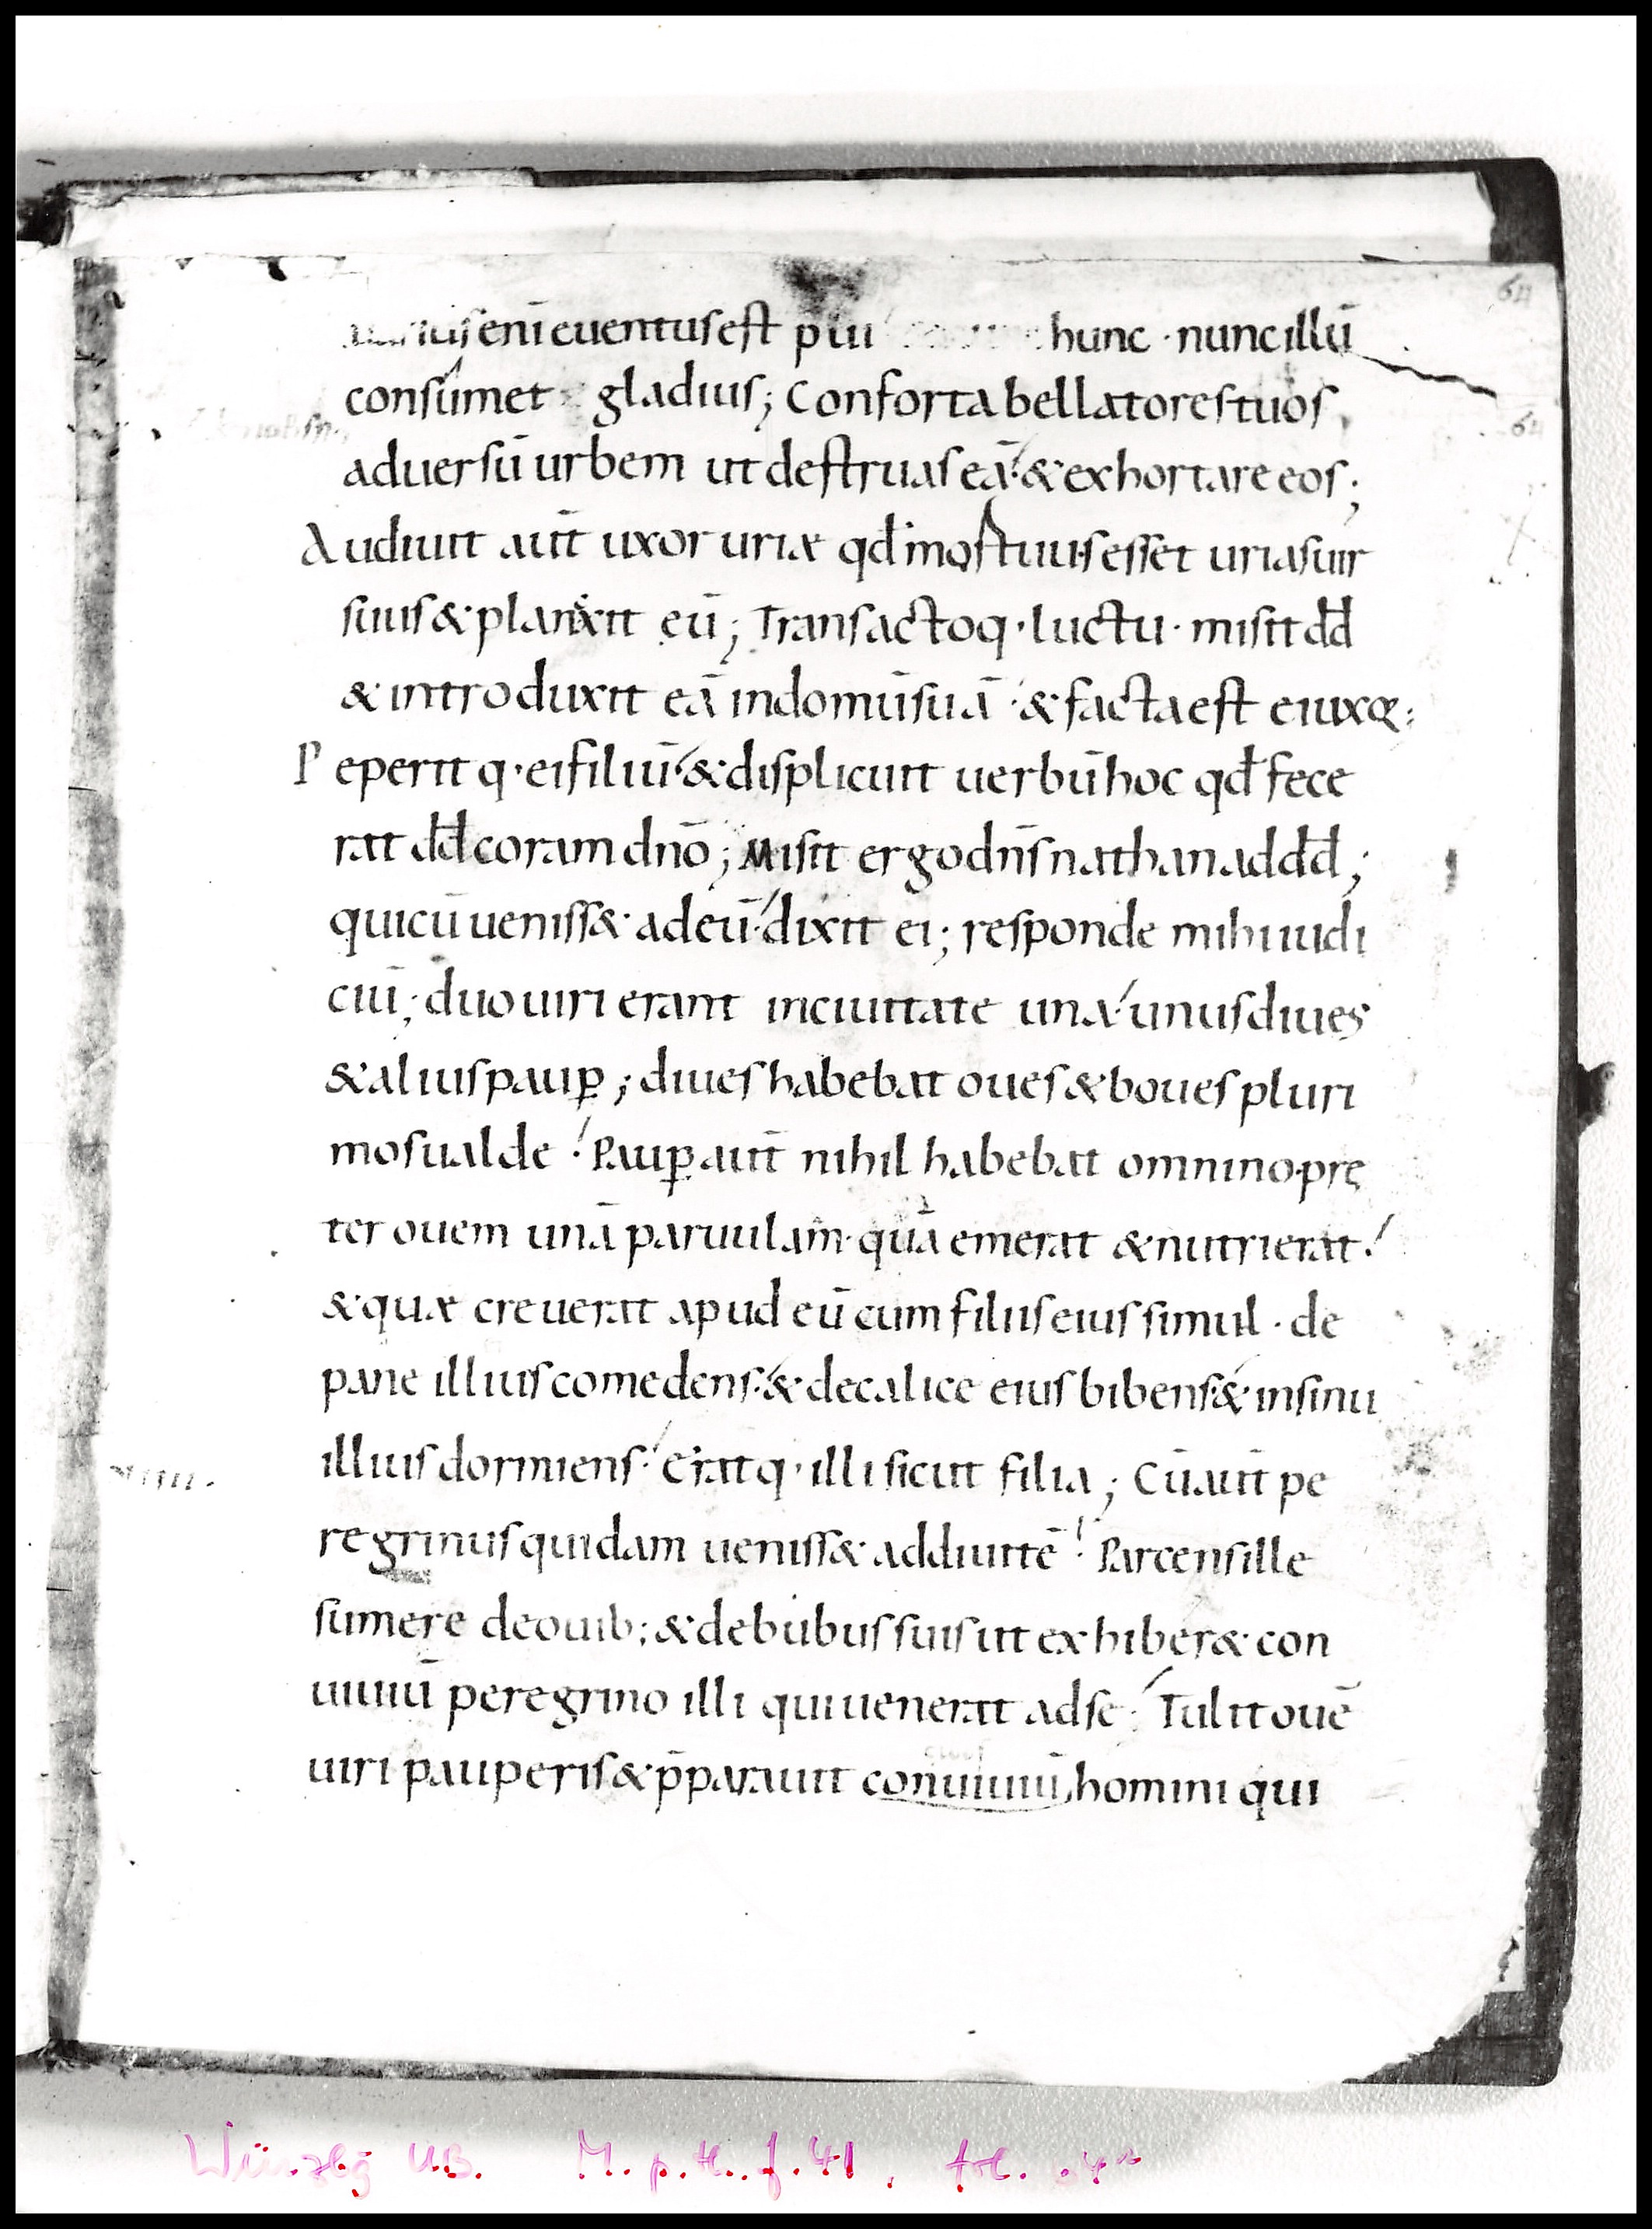 enī euentus est p̄lii hunc · nunc illū
consumet gladius; Conforta bellatores tuos
aduersū urbem ut destruas eā · & exhortare eos;
Audiuit aūt uxor uriæ qd̄ mortuus esset urias uir
suus & planxit eū; Transactoq· luctu · misit dd̄
& introduxit eā in domū suā · & facta est ei uxor;
Peperitq· ei filiū · & displicuit uerbū hoc qd̄ fece
rat dd̄ coram dn̄o; Misit ergo dn̄s nathan ad dd̄;
qui cū ueniss& ad eū · dixit ei; responde mihi iudi
ciū; duo uiri erant in ciuitate una · unus diues
& alius paup̱; diues habebat oues & boues pluri
mos ualde · Paup̱ aūt nihil habebat omnino · pre
ter ouem unā paruulam · quā emerat & nutrierat ·
& quæ creuerat apud eū cum filiis eius simul · de
pane illius comedens · & de calice eius bibens · & in sinu
illius dormiens · Eratq· illi sicut filia; Cū aūt pe
regrinus quidam ueniss& ad diuitē · Parcens ille
sumere de ouib; & de bubus suis ut exhiber& con
uiuiū peregrino illi qui uenerat ad se · Tulit ouē
uiri pauperis & p̄parauit conuiuiū homini qui
64
64
Würzbg UB. M. p. th. f. 41,